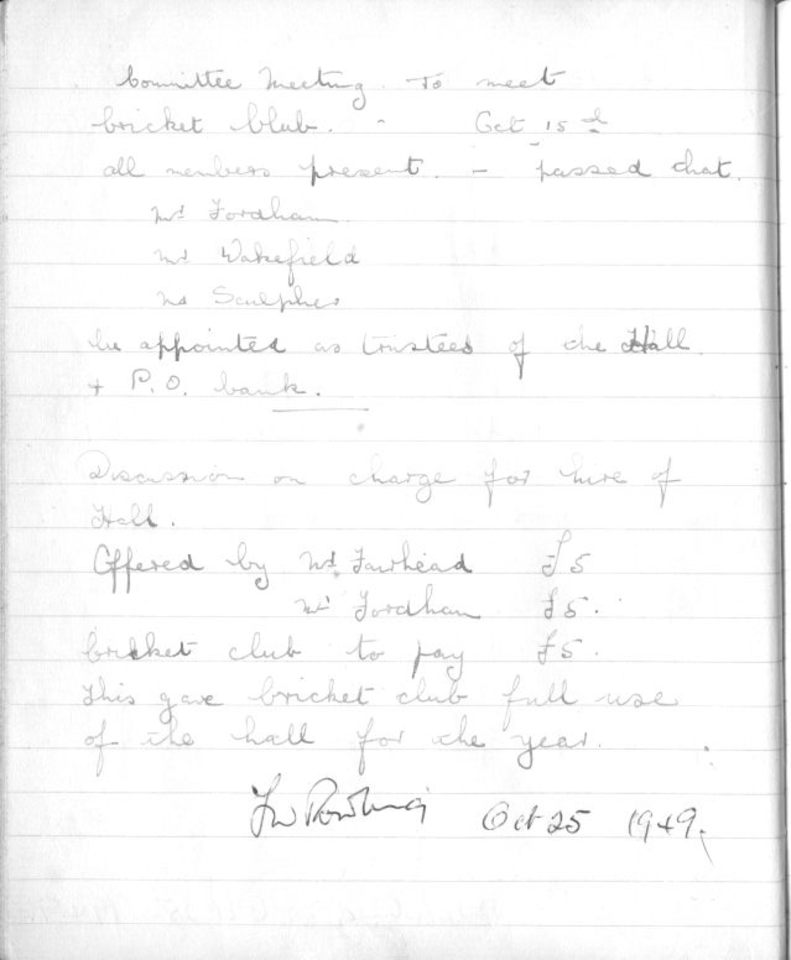 Committee Meeting. To meet
Cricket Club. - Oct 15
all members present. - passed that.
Mr Fordham
Mr Wakefield
Mr Sculpher
be appointed as trustees of the Hall.
+ P.O. bank.
Discussion on charge for hire of
Hall.
Offered by Mr Fairhead £5
Mr Fordham £5.
Cricket club to pay £5.
This gave Cricket club full use
of the hall for the year.
Oct 25 1949.